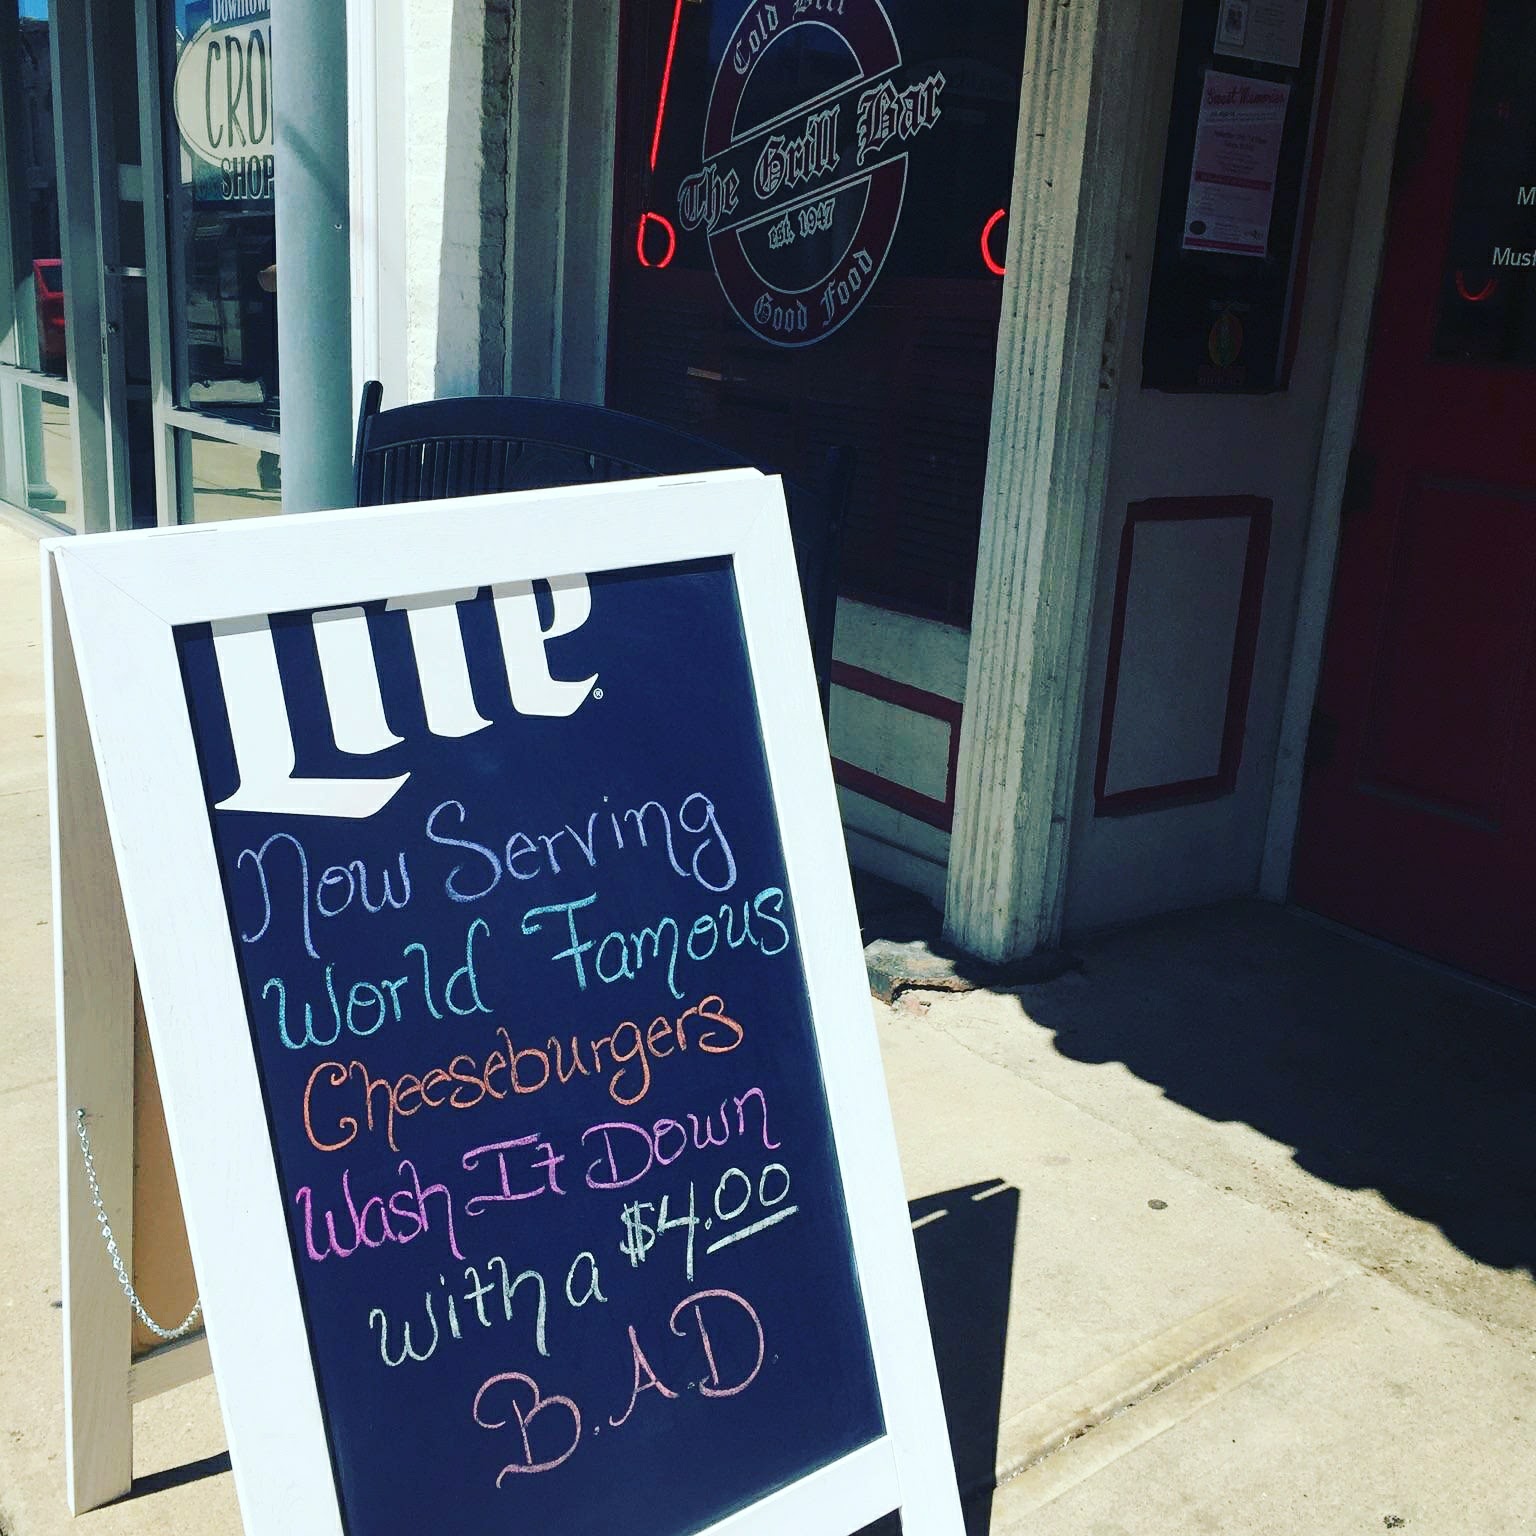 Downtown
CRO
SHOP
Cold Beer
The Grill Bar
est. 1947
Good Food
Sweet Memories
Lite®
Now Serving
World Famous
Cheeseburgers
Wash It Down
with a $4.00
B.A.D.